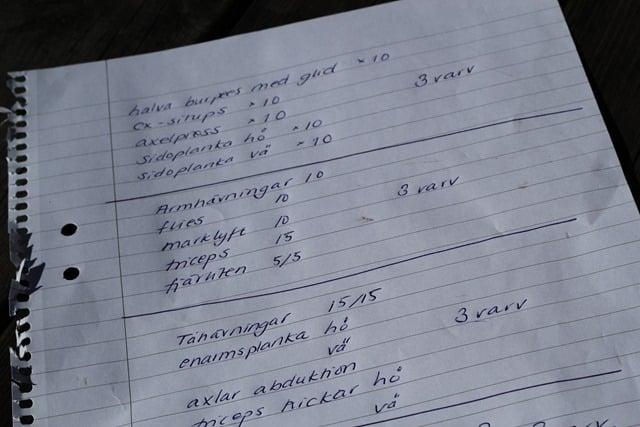 halva burpees med glid × 10
ex-situps × 10
axelpress × 10
sidoplanka hö × 10
sidoplanka vä × 10
3 varv
Armhävningar 10
flies 10
marklyft 10
triceps 15
fjärilen 5/5
3 varv
Tåhävningar 15/15
enarmsplanka hö
vä
3 varv
axlar abduktion
triceps kickar hö
vä